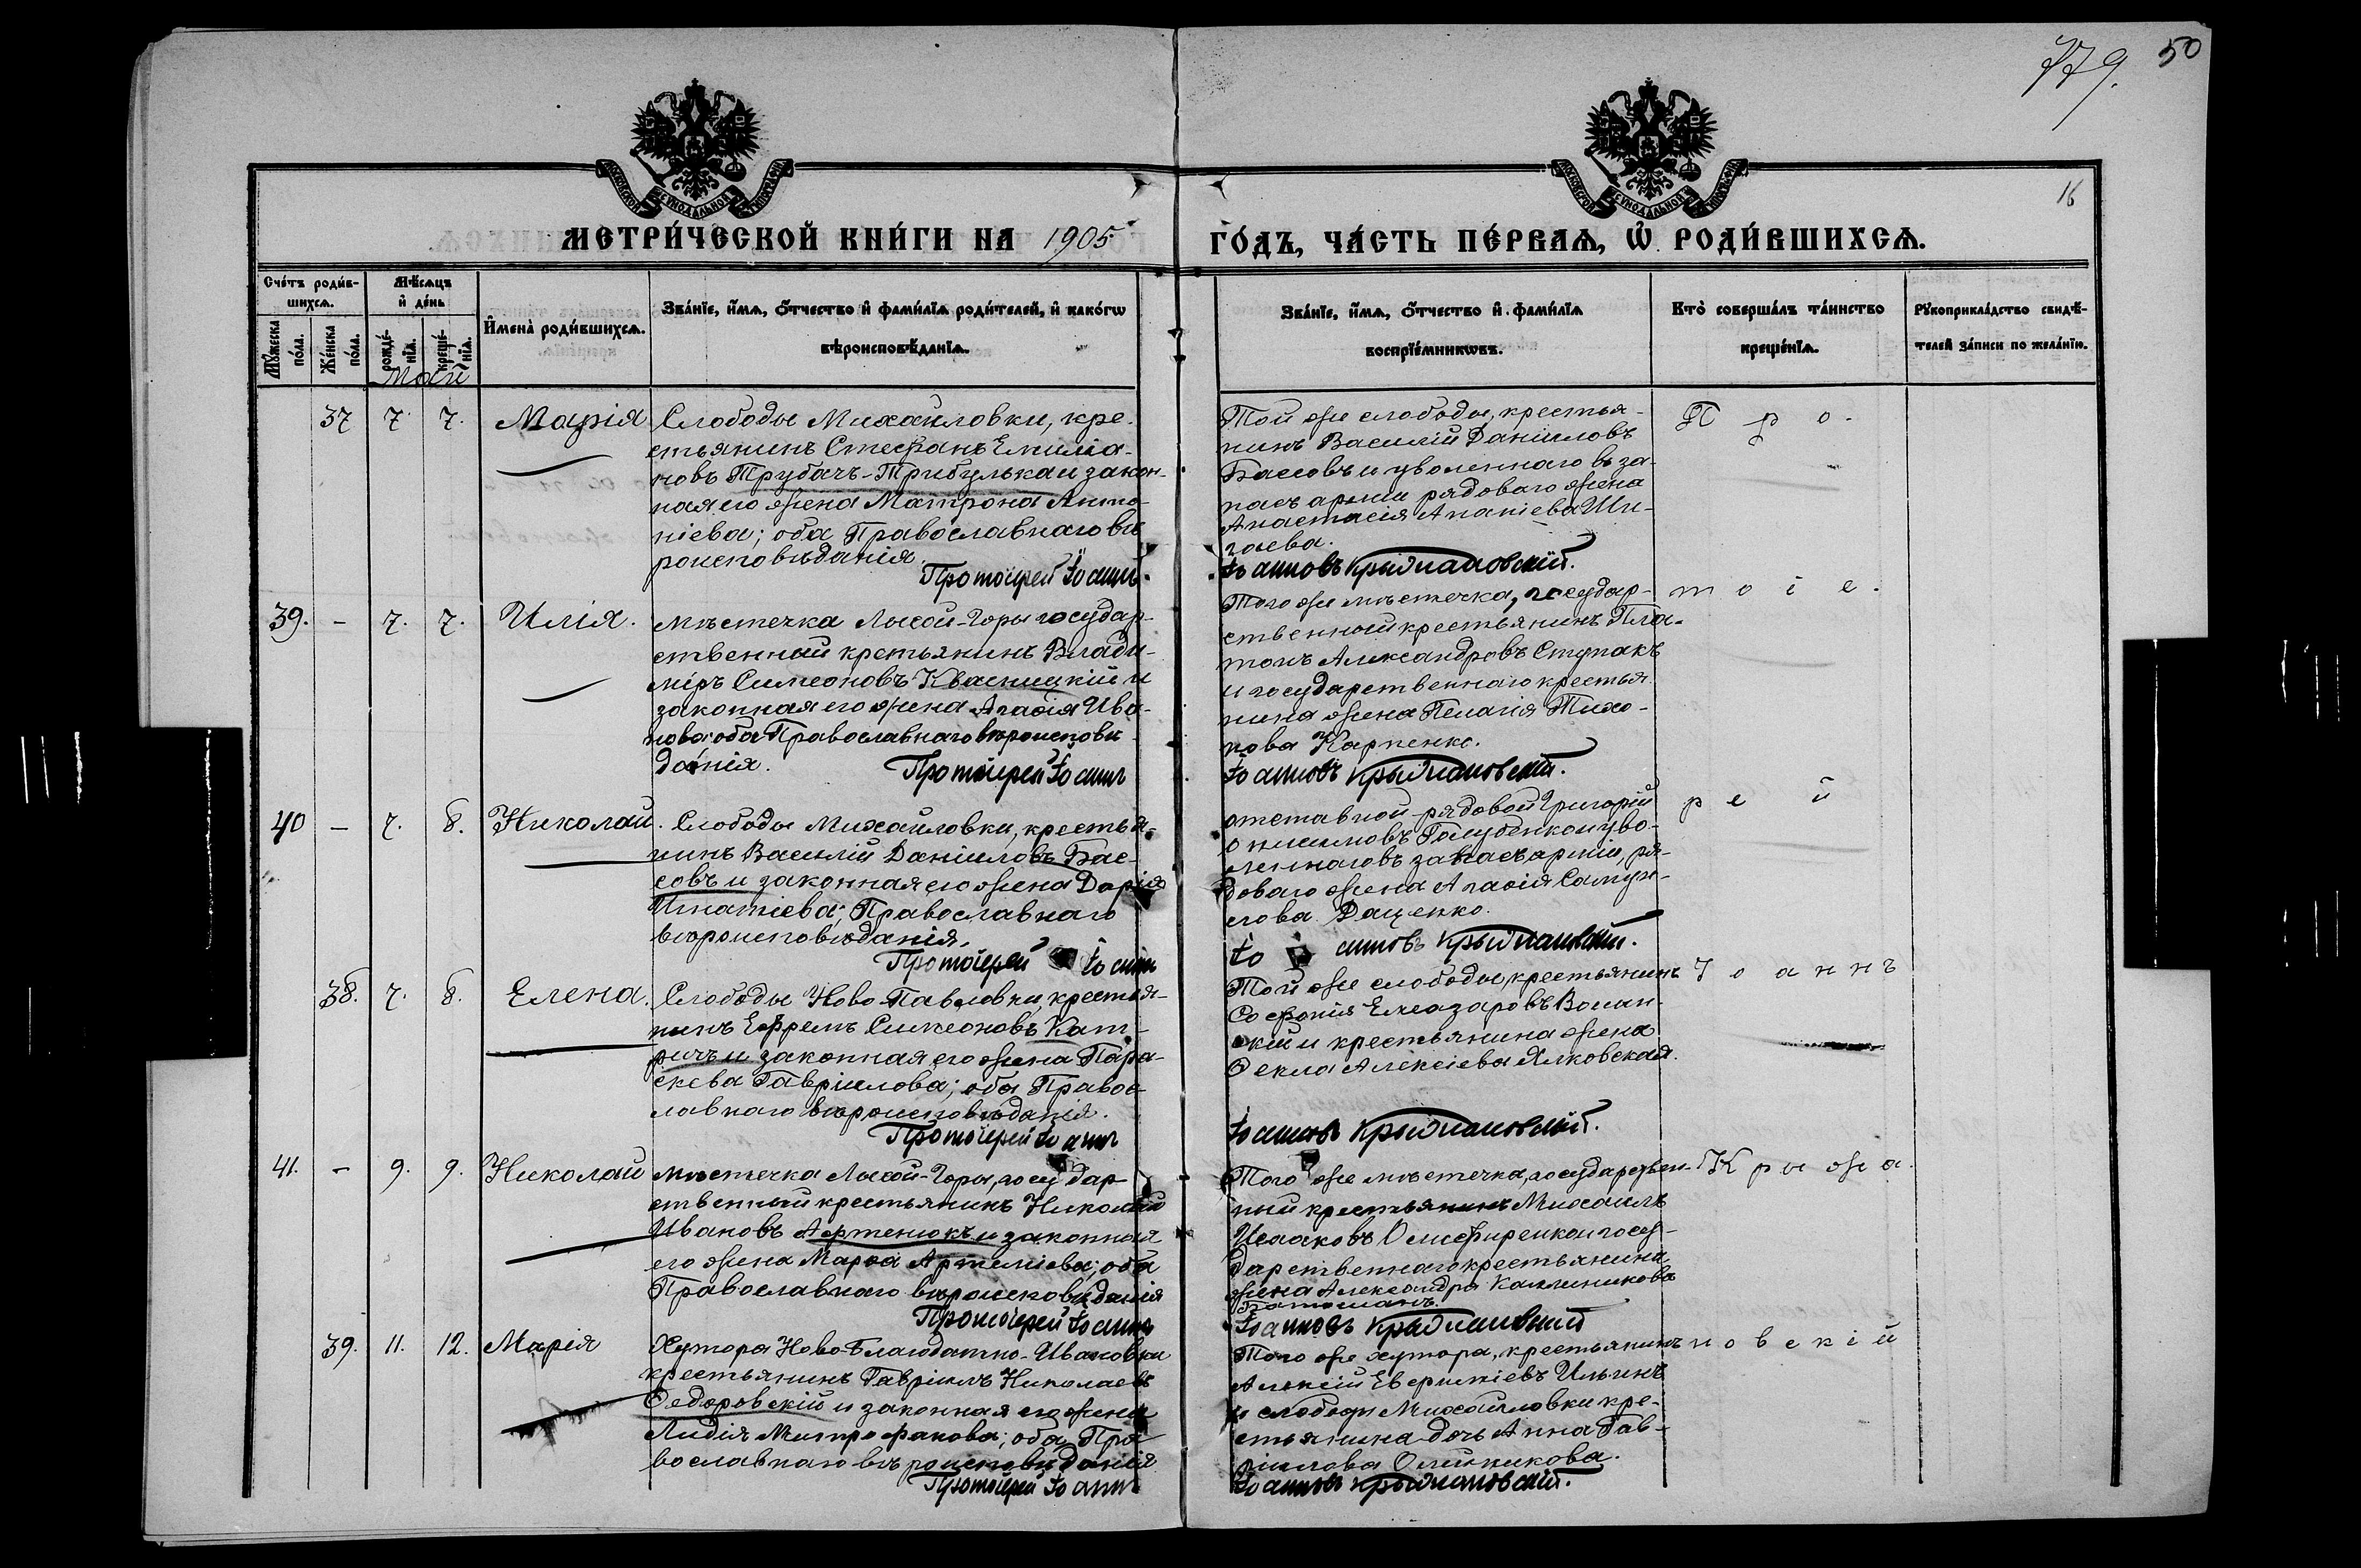 779. 50
16
МОСКОВСКОЙ СѴНОДАЛЬНОЙ ТИПОГРАФІИ
МОСКОВСКОЙ СѴНОДАЛЬНОЙ ТИПОГРАФІИ
МЕТРИ́ЧЕСКОЙ КНИ́ГИ НА 1905
ГО́ДЪ, ЧА́СТЬ ПЕ́РВАѦ, Ѡ҆ РОДИ́ВШИХСѦ.
Сче́тъ роди́в-
шихсѧ.
Мꙋ́жеска по́ла.
Же́нска по́ла.
Мѣ́сѧцъ
и҆ де́нь
рожде́-
нїѧ.
креще́-
нїѧ.
И҆мена̀ роди́вшихсѧ.
Зва́нїе, и҆́мѧ, ѻ҆́тчество и҆ фами́лїѧ роди́телей, и҆ како́гѡ
вѣроисповѣ́данїѧ.
Зва́нїе, и҆́мѧ, ѻ҆́тчество и҆ фами́лїѧ
воспрїе́мникѡвъ.
Кто̀ соверша́лъ та́инство
креще́нїѧ.
Рꙋкоприкла́дство свидѣ́-
телей за́писи по жела́нїю.
Май
37 7. 7. Марія
Слободы Михайловки, кре-
стьянинъ Стефанъ Емиліа-
новъ Трубачъ-Трибулька и закон-
ная его жена Матрона Анто-
ніева; оба Православнаго вѣ
роисповѣданія.
Протоіерей Іоаннъ
Той же слободы, крестья-
нинъ Василій Даніиловъ
Бассовъ и уволеннаго въ за-
пасъ арміи рядоваго жена
Анастасія Ананіева Ши-
гаева.
Іоанновъ Крыжановскій.
П р о.
39. - 7. 7. Илія.
мѣстечка Лысой-Горы государ-
ственный кретьянинъ Влади-
міръ Симеоновъ Квасницкій и
законная его жена Агаѳія Ива-
нова: оба Православнаго вѣроисповѣ
данія.
Протоіерей Іоаннъ
Того же мѣстечка, государ-
ственный крестьянинъ Пла-
тонъ Александровъ Ступакъ
и государственнаго крестья
нина жена Пелагія Тихо-
нова Карпенко.
Іоанновъ Крыжановскій.
т о і е.
40 - 7. 8. Николай.
Слободы Михайловки, крестья-
нинъ Василій Даніиловъ Бас-
совъ и законная его жена Дарія
Игнатіева; Православнаго
вѣроисповѣданія.
Протоіерей Іоаннъ
отставной рядовой Григорій
Онисимовъ Голубенко и уво-
леннаго въ запасъ арміи, ря-
доваго жена Агаѳія Самуи-
лова Даценко.
Іоанновъ Крыжановскій.
р е й
38. 7. 8. Елена.
Слободы Ново-Павловки, крестья-
нинъ Ефремъ Симеоновъ Кат-
ричъ и законная его жена Пара-
скева Гавріилова; оба Правос
лавнаго вѣроисповѣданія.
Протоіерей Іоаннъ
Той же слободы, крестьянинъ
Софонія Елеазаровъ Волан-
скій и крестьянина жена
Ѳекла Алексіева Ялковская.
Іоанновъ Крыжановскій.
І о а н н ъ
41. - 9. 9. Николай
мѣстечка Лысой-Горы, государ
ственный крестьянинъ Николай
Ивановъ Артенюкъ и законная
его жена Марѳа Артеміева; оба
Православнаго вѣроисповѣданія
Протоіерей Іоаннъ
Того же мѣстечка, государствен-
ный крестьянинъ Михаилъ
Исааковъ Олисфиренко и госу-
дарственнаго крестьянина
жена Александра Каллиникова
Іоанновъ Крыжановскій
К р ы ж а.
39. 11. 12. Марія
Хутора Ново-Благодатно-Ивановки
крестьянинъ Гавріилъ Николаевъ
Ѳедоровскій и законная его жена
Лидія Митрофанова; оба Пра
вославнаго вѣроисповѣданія
Протоіерей Іоаннъ
Того же хутора, крестьянинъ
Алексій Евфиміевъ Ильинъ
и слободы Михайловки кре-
стьянина дочь Анна Гав-
ріилова Олейникова.
Іоанновъ Крыжановскій.
н о в с к і й